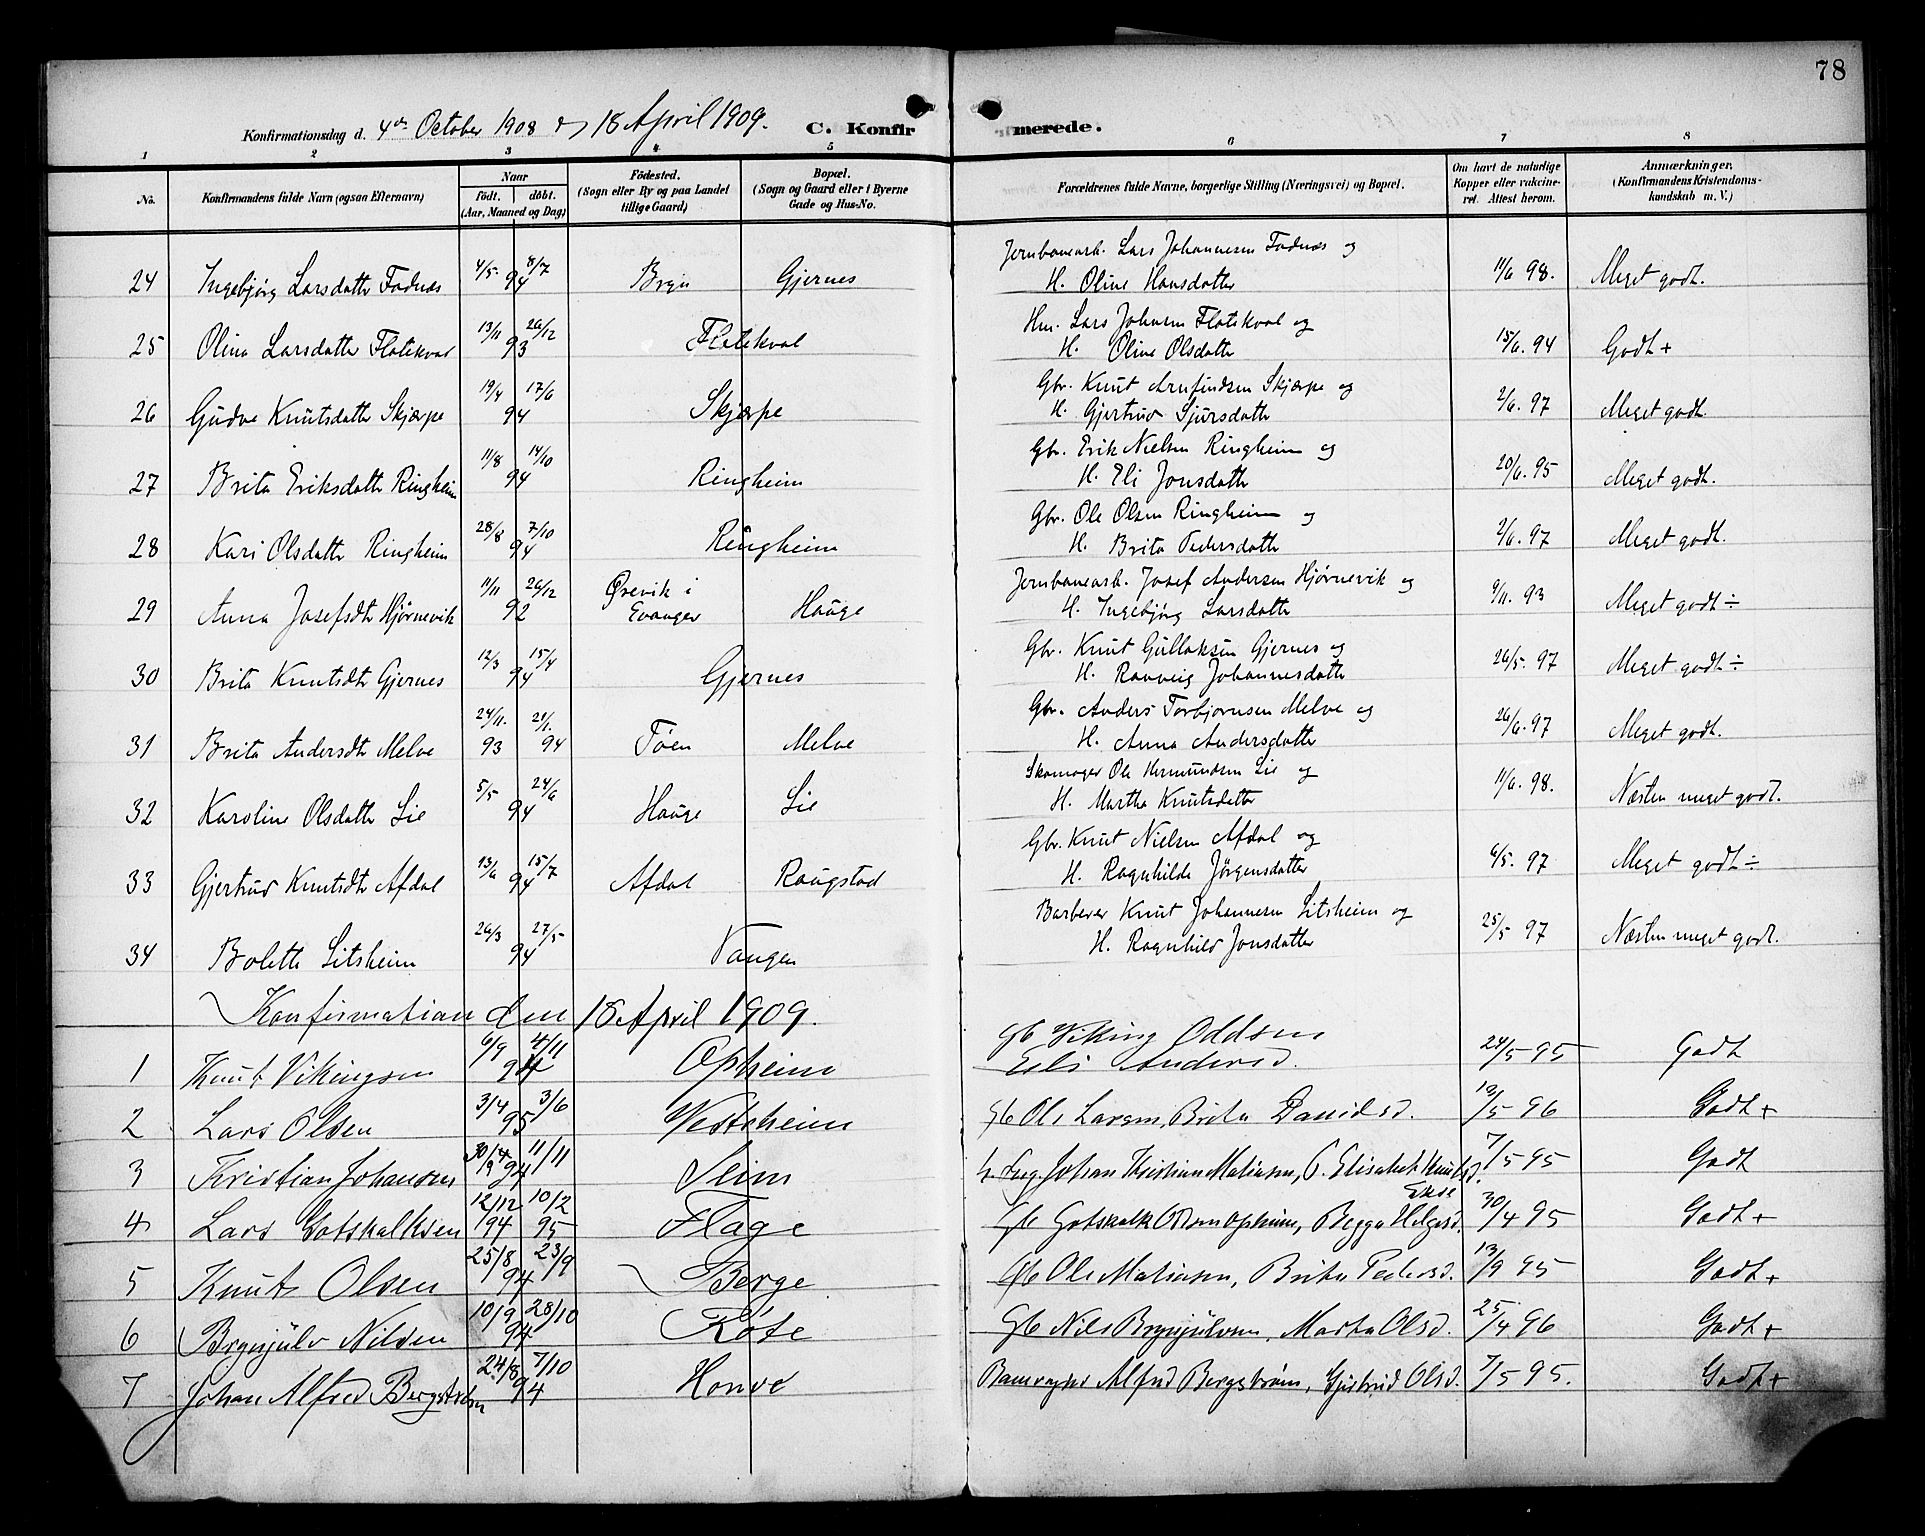 78
Konfirmationsdag d. 4de October 1908 & 18 April 1909. C. Konfirmerede.
1 2 3 4 5 6 7 8
No. Konfirmandens fulde Navn (ogsaa Efternavn) Naar født. døbt. (Aar, Maaned og Dag) Fødested. (Sogn eller By og paa Landet tillige Gaard) Bopæl. (Sogn og Gaard eller i Byerne Gade og Hus-No. Forældrenes fulde Navne, borgerlige Stilling (Næringsvei) og Bopæl. Om havt de naturlige Kopper eller vakcineret. Attest herom. Anmærkninger. (Konfirmandens Kristendomskundskab m. V.)
24 Ingebjørg Larsdatter Fadnæs 4/5. 8/7 94 Bryn Gjernes Jernbanearb. Lars Johannesen Fadnæs og H. Oline Hansdatter 11/6 98. Meget godt.
25 Olina Larsdatter Flatekval 13/11 26/12 93 Flatekval Hm. Lars Johnsen Flatekval og H. Oline Olsdatter 15/6. 94 Godt +
26 Gudve Knutsdatter Skjærpe 19/4 17/6 94 Skjærpe Gbr. Knut Arnfindsen Skjærpe og H. Gjertrud Sjursdatter 2/6. 97 Meget godt.
27 Brita Eriksdatter Ringheim 11/8 14/10 94 Ringheim Gbr. Erik Nielsen Ringheim og H. Eli Jonsdatter 20/6. 95 Meget godt.
28 Kari Olsdatter Ringheim 28/8 7/10 94 Ringheim Gbr. Ole Olsen Ringheim og H. Brita Pedersdatter 2/6. 97 Meget godt.
29 Anna Josefsdtr Hjørnevik 11/11 26/12 92 Ørevik i Evanger Hauge Jernbanearb. Josef Andersen Hjørnevik og H. Ingebjørg Larsdatter 9/11. 93 Meget godt ÷
30 Brita Knutsdtr Gjernes 12/3 15/4 94 Gjernes Gbr. Knut Gullaksen Gjernes og H. Ranveig Johannesdatter 26/5. 97 Meget godt ÷
31 Brita Andersdtr Melve 24/11. 93 21/1. 94 Tøen Melve Gbr. Anders Torbjørnsen Melve og H. Anna Andersdatter 26/6. 97 Meget godt.
32 Karoline Olsdatter Lie 5/5 24/6 94 Hauge Lie Skomager Ole Hermundsen Lie og H. Martha Knutsdatter 11/6. 98. Næsten meget godt.
33 Gjertrud Knutsdtr Afdal 13/6 15/7 94 Afdal Raugstad Gbr. Knut Nielsen Afdal og H. Ragnhilde Jørgensdatter 6/5. 97 Meget godt ÷
34 Bolette Litsheim 26/3 27/5 94 Vangen Barberer Knut Johannesen Litsheim og H. Ragnhild Jonsdatter 25/5 97 Næsten meget godt.
Konfirmation den 18 April 1909.
1 Knut Vikingson 6/9 4/11 94 Opheim Gb Viking Oddsen Eli Andersd. 24/5 95 Godt
2 Lars Olsen 3/4 3/6 95 Gb Ole Larsen, Brita Davidsd. 12/5 96 Godt +
3 Kristian Johansen 30/9 11/11 94 Seim Johan Kristian Matiasen, Elisabet Knutsd. 7/5 95 Godt
4 Lars Gotskalksen 12/12 94 10/2 95 Flage Gb Gotskalk Odsen Opheim, Begga Helgesd. Ekse 30/4 95 Godt +
5 Knut Olsen 25/8 23/9 94 Berge Gb Ole Matiasen, Brita Pedersd. 13/9 95 Godt +
6 Brynjulv Nilsen 10/9 28/10 94 Røte Gb Nils Brynjulvsen, Marta Olsd. 25/4 96 Godt +
7 Johan Alfred Bergstrøm 24/8 7/10 94 Honve Banevogter Alfred Bergstrøm, Gjertrud Olsd. 7/5 95. Godt +